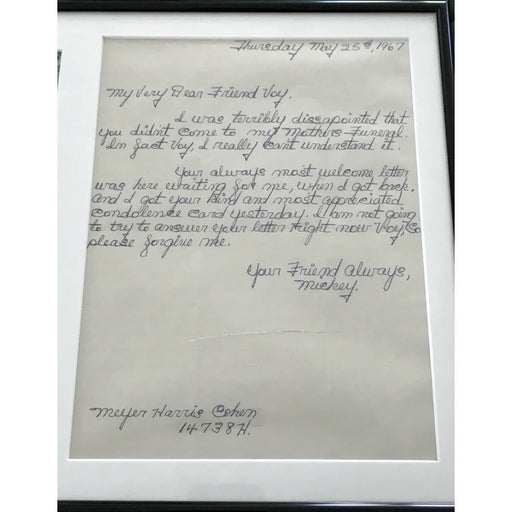 Thursday May 25th, 1967
My Very Dear Friend Voy.
I was terribly dissapointed that
you didn't come to my Mothers Funeral.
In fact Voy, I really can't understand it.
Your always most welcome letter
was here waiting for me, when I got back.
And I got your kind and most appreciated
condolence card yesterday. I am not going
to try to answer your letter right now Voy, So
please forgive me.
Your Friend always,
Mickey.
Meyer Harris Cohen
14738H.